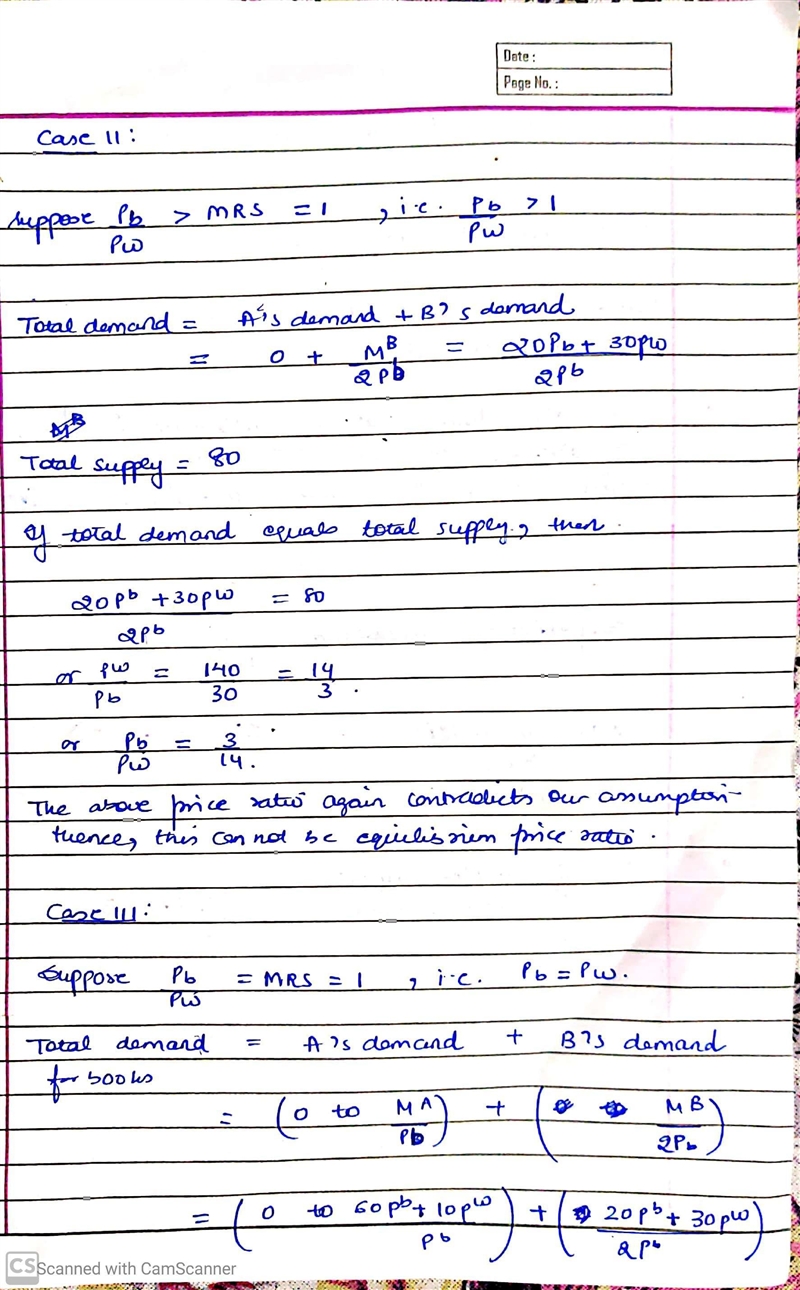 Date :
Page No. :
Case II :
Suppose Pb/Pw > MRS = 1 , i.e. Pb/Pw > 1
Total demand = A's demand + B's demand
= 0 + M^B/2Pb = 20Pb + 30pw/2Pb
Total supply = 80
If total demand equals total supply, then
20Pb + 30pw/2Pb = 80
or Pw/Pb = 140/30 = 14/3 .
or Pb/Pw = 3/14 .
The above price ratio again contradicts our assumption
hence, this can not be equilibrium price ratio .
Case III :
Suppose Pb/Pw = MRS = 1 , i.e. Pb = Pw .
Total demand = A's demand + B's demand
for books
= (0 to MA/Pb) + (MB/2Pb)
= (0 to 60pb + 10pw/pb) + (20pb + 30pw/2pb)
CS Scanned with CamScanner